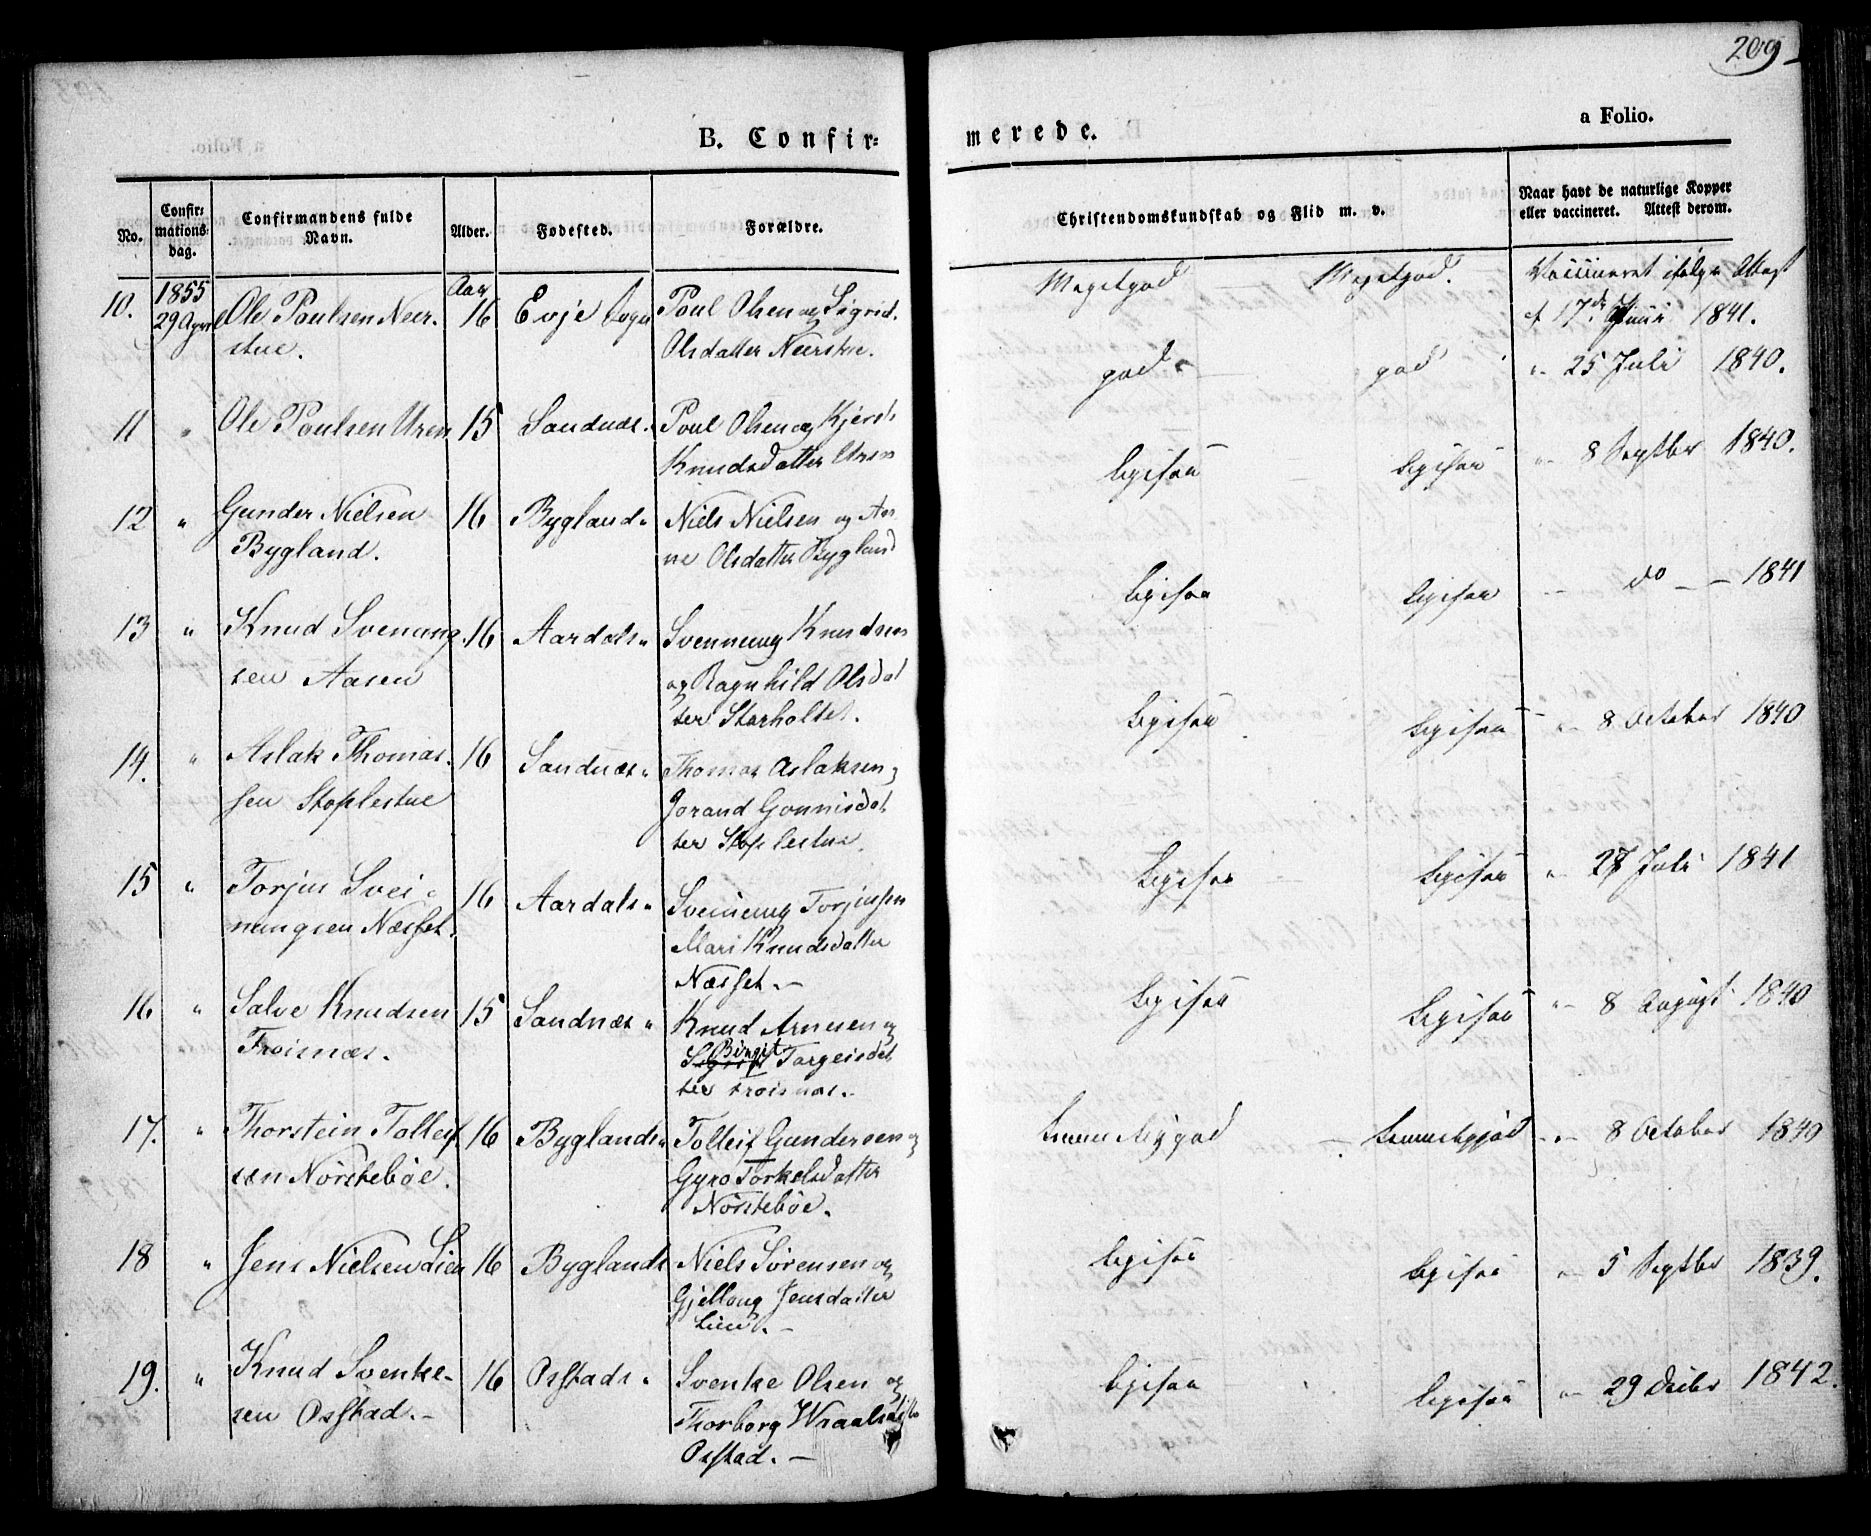 209
a Folio.
B. Confir=
merede.
No.
Confir=
mations=
dag.
Confirmandens fulde
Navn.
Alder.
Fodested.
Forældre.
Christendomskundskab og Flid m. v.
Naar havt de naturlige Kopper
eller vaccineret. Attest derom.
10.
1855
29 April
Ole Poulsen Neer-
stue.
Aar
16
Evje Sogn
Poul Olsen og Sigrid
Olsdatter Neerstue.
Megetgod
Megetgod.
Vaccineret ifølge Attest
af 17de Juni 1841.
11
"
Ole Poulsen Uren
15
Sandnæs "
Poul Olsen og Kjersti
Knudsdatter Uren
god
god
" 25 Juli 1840.
12
"
Gunder Nielsen
Bygland.
16
Bygland "
Niels Nielsen og An
ne Olsdatter Bygland
ligesaa
ligesaa
" 8 Septbr 1840.
13
"
Knud Svenung-
sen Aasen
16
Aardals "
Svennung Knudsen
og Ragnhild Olsdat
ter Storholtet.
ligesaa
ligesaa
" do - 1841
14.
"
Aslak Thomas-
sen Stoplestue
16
Sandnæs "
Thomas Aslaksen og
Jorand Gonnisdat
ter Stoplestue.
ligesaa
ligesaa
" 8 October 1840
15
"
Torjus Svei-
nungsen Næsset.
16
Aardals "
Sveinung Torjussen
Mari Knudsdatter
Næsset. -
ligesaa
ligesaa
" 27 Juli 1841
16
"
Salve Knudsen
Froisnæs.
15
Sandnæs "
Knud Arnesen og
Birgit
Sigrid Targeisdat
ter Froisnæs. -
ligesaa
ligesaa
" 8 August 1840
17.
"
Thorstein Tolleif
sen Nörstebøe.
16
Byglands "
Tolleif Gundersen og
Gyro Torkelsdatter
Nörstebøe.
8 October 1840
18
"
Jens Nielsen Lien
16
Byglands
Niels Sørensen og
Gjellaug Jensdatter
Lien. -
ligesaa
ligesaa
" 5 Septbr 1839.
19.
"
Knud Svenke-
sen Osstad. -
16
Osstads "
Svenke Olsen og
Thorborg Wraalsdatter
Osstad. -
ligesaa
ligesaa
" 29 Decbr 1842.